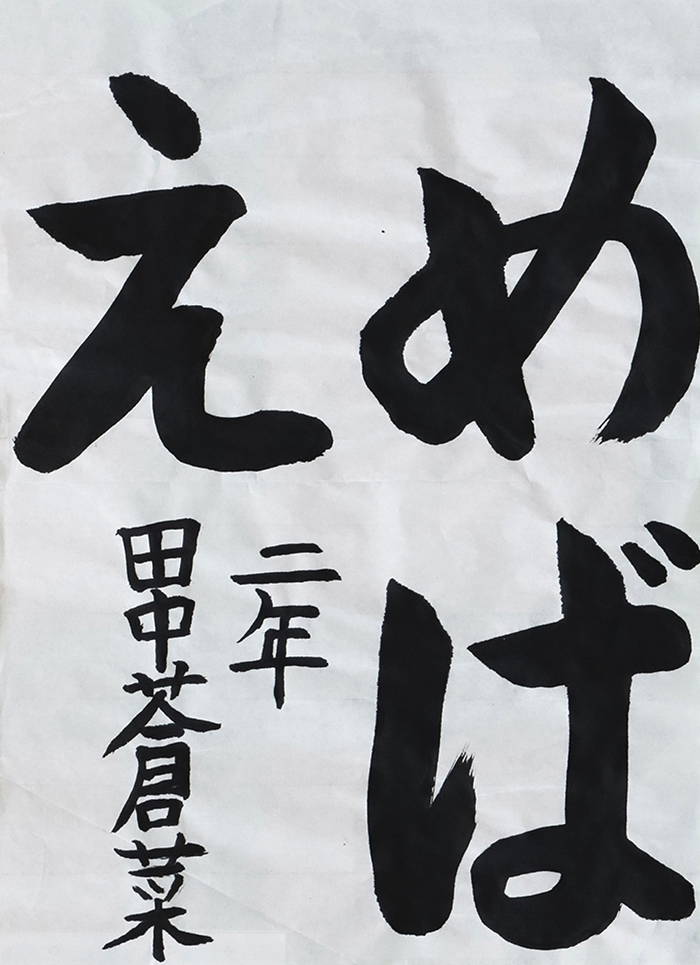 めば
え
二年
田中蒼菜